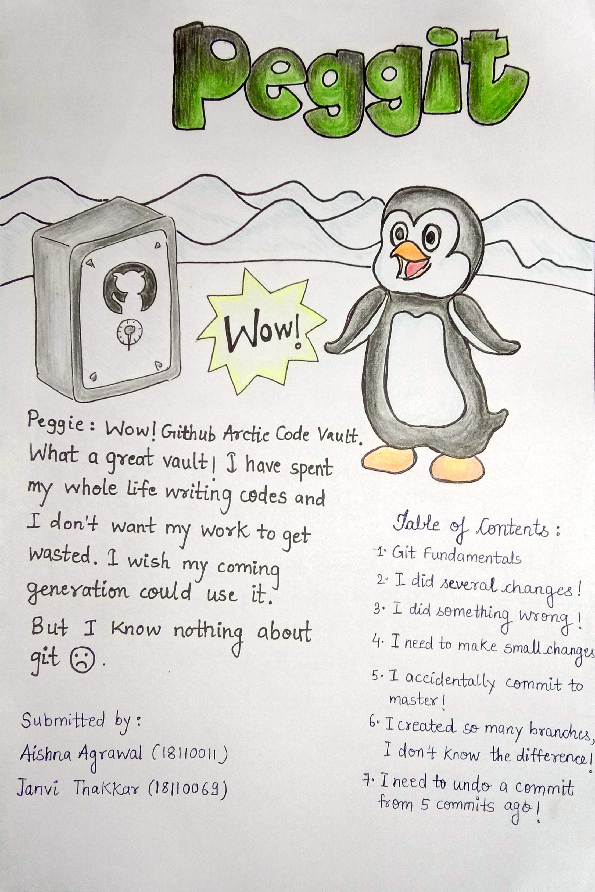 Peggit
Wow!
Peggie: Wow! Github Arctic Code Vault.
What a great vault! I have spent
my whole life writing codes and
I don't want my work to get
wasted. I wish my coming
generation could use it.
But I know nothing about
git ☹.
Submitted by:
Aishna Agrawal (18110011)
Janvi Thakkar (18110069)
Table of Contents:
1. Git Fundamentals
2. I did several changes!
3. I did something wrong!
4. I need to make small changes
5. I accidentally commit to
master!
6. I created so many branches,
I don't know the difference!
7. I need to undo a commit
from 5 commits ago!